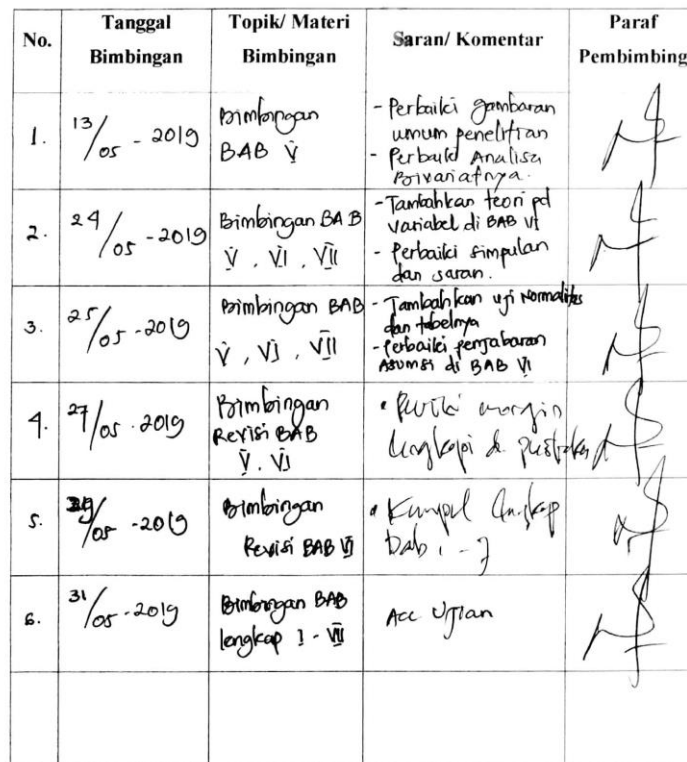 No.
Tanggal
Bimbingan
Topik/ Materi
Bimbingan
Saran/ Komentar
Paraf
Pembimbing
1.
13/05 - 2019
Bimbingan
BAB V
- Perbaiki gambaran
umum penelitian
- Perbaiki Analisa
Bivariatnya.
2.
24/05 - 2019
Bimbingan BAB
V, VI, VII
- Tambahkan teori pd
variabel di BAB VI
- Perbaiki simpulan
dan saran.
3.
25/05 - 2019
Bimbingan BAB
V, VI, VII
- Tambahkan uji Normalitas
dan tabelnya
- Perbaiki penjabaran
Asumsi di BAB VI
4.
27/05 - 2019
Bimbingan
Revisi BAB
V. VI
margin
lengkapi
5.
/05 - 2019
Bimbingan
Revisi BAB VI
Kumpul lengkap
bab 1 - 7
6.
31/05 - 2019
Bimbingan BAB
lengkap I - VII
Acc Ujian